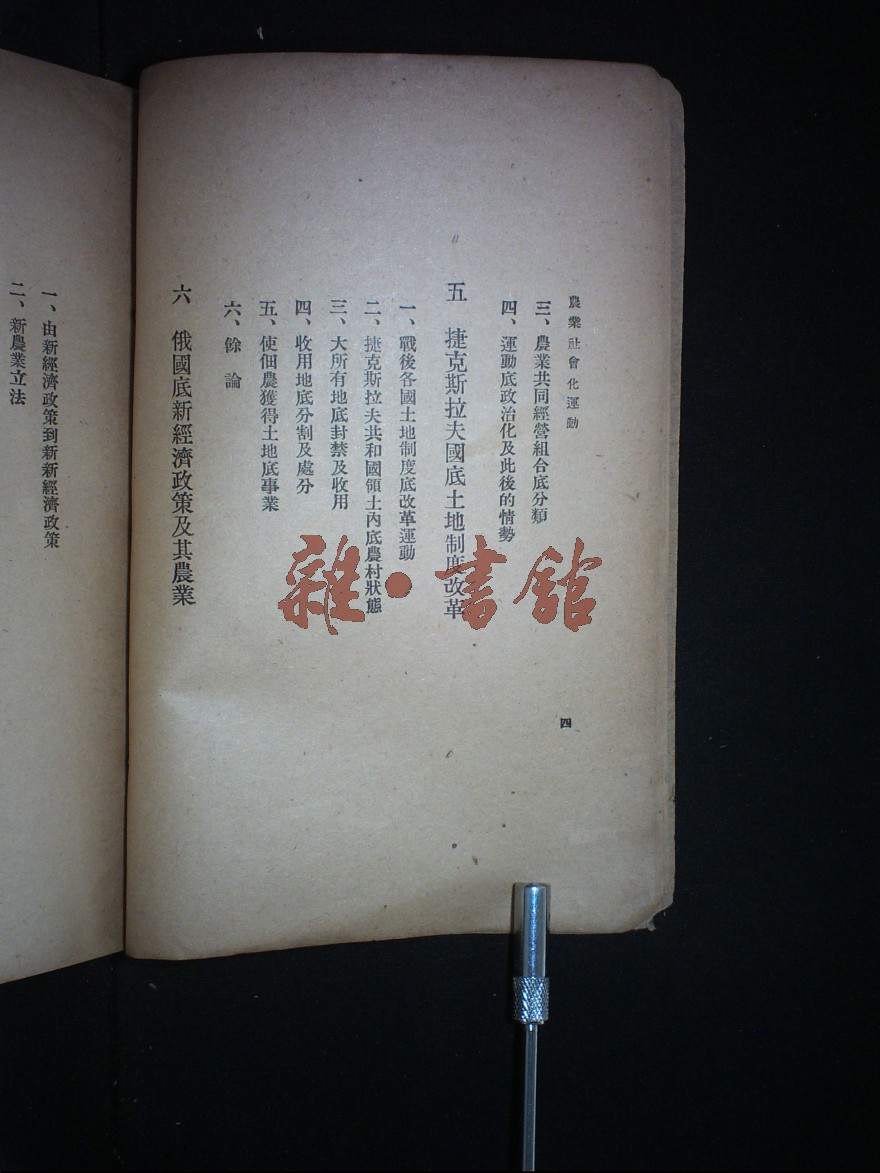 農業社會化運動
三、農業共同經營組合底分類
四、運動底政治化及此後的情勢
五 捷克斯拉夫國底土地制度改革
一、戰後各國土地制度底改革運動
二、捷克斯拉夫共和國領土內底農村狀態
三、大所有地底封禁及收用
四、收用地底分割及處分
五、使佃農獲得土地底事業
六、餘論
六 俄國底新經濟政策及其農業
四
一、由新經濟政策到新新經濟政策
二、新農業立法
雜·書館